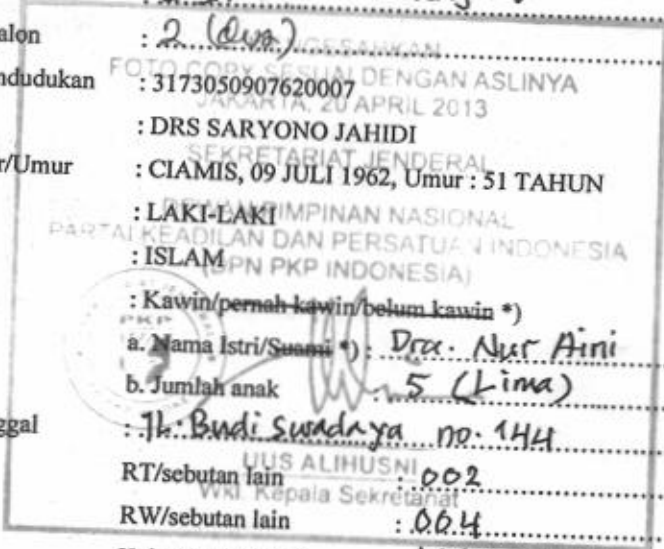 alon : 2 (dua)
ndudukan : 3173050907620007
: DRS SARYONO JAHIDI
r/Umur : CIAMIS, 09 JULI 1962, Umur : 51 TAHUN
: LAKI-LAKI
: ISLAM
: Kawin/pernah kawin/belum kawin *)
a. Nama Istri/Suami *) : Dra. Nur Aini
b. Jumlah anak : 5 (Lima)
ggal : Jl. Budi Swadaya no. 144
RT/sebutan lain : 002
RW/sebutan lain : 004
DISAHKAN
FOTO COPY SESUAI DENGAN ASLINYA
JAKARTA, 20 APRIL 2013
SEKRETARIAT JENDERAL
DEWAN PIMPINAN NASIONAL
PARTAI KEADILAN DAN PERSATUAN INDONESIA
(DPN PKP INDONESIA)
PKP
UUS ALIHUSNI
Wkl. Kepala Sekretariat